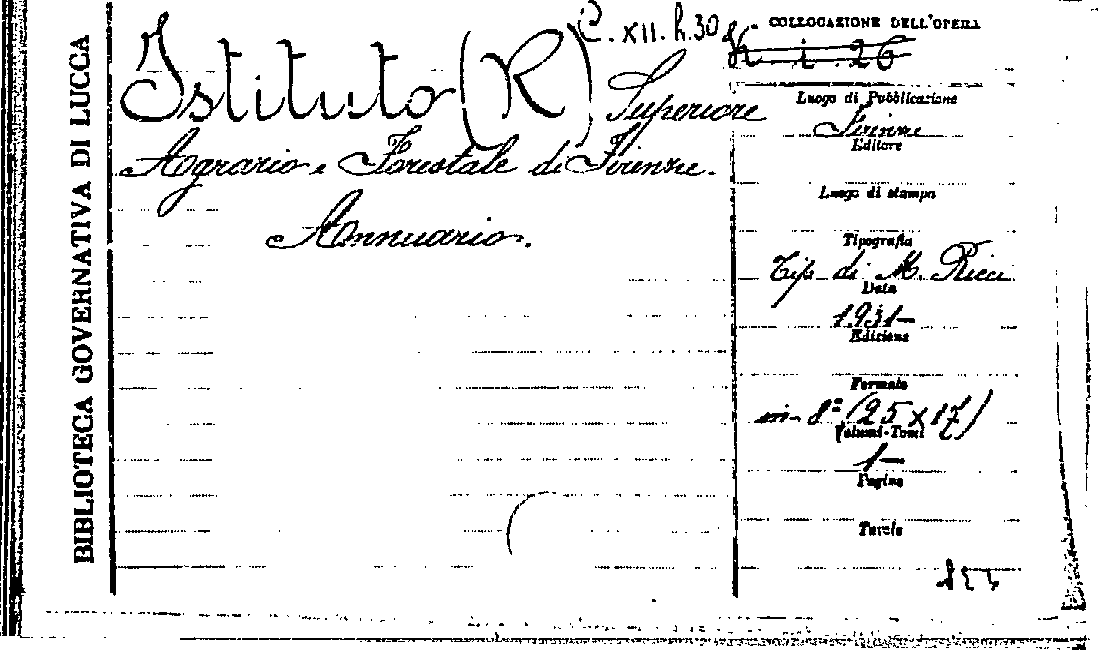 BIBLIOTECA GOVERNATIVA DI LUCCA
Istituto (R) Superiore
Agrario e Forestale di Firenze.
Annuario.
C. XII. h. 30
COLLOCAZIONE DELL'OPERA
i 26
Luogo di Pubblicazione
Firenze
Editore
Luogo di stampa
Tipografia
Tip. di M. Ricci
Data
1931-
Edizione
Formato
in-8º (25 x 17)
Volumi-Tomi
1-
Pagine
Tavole